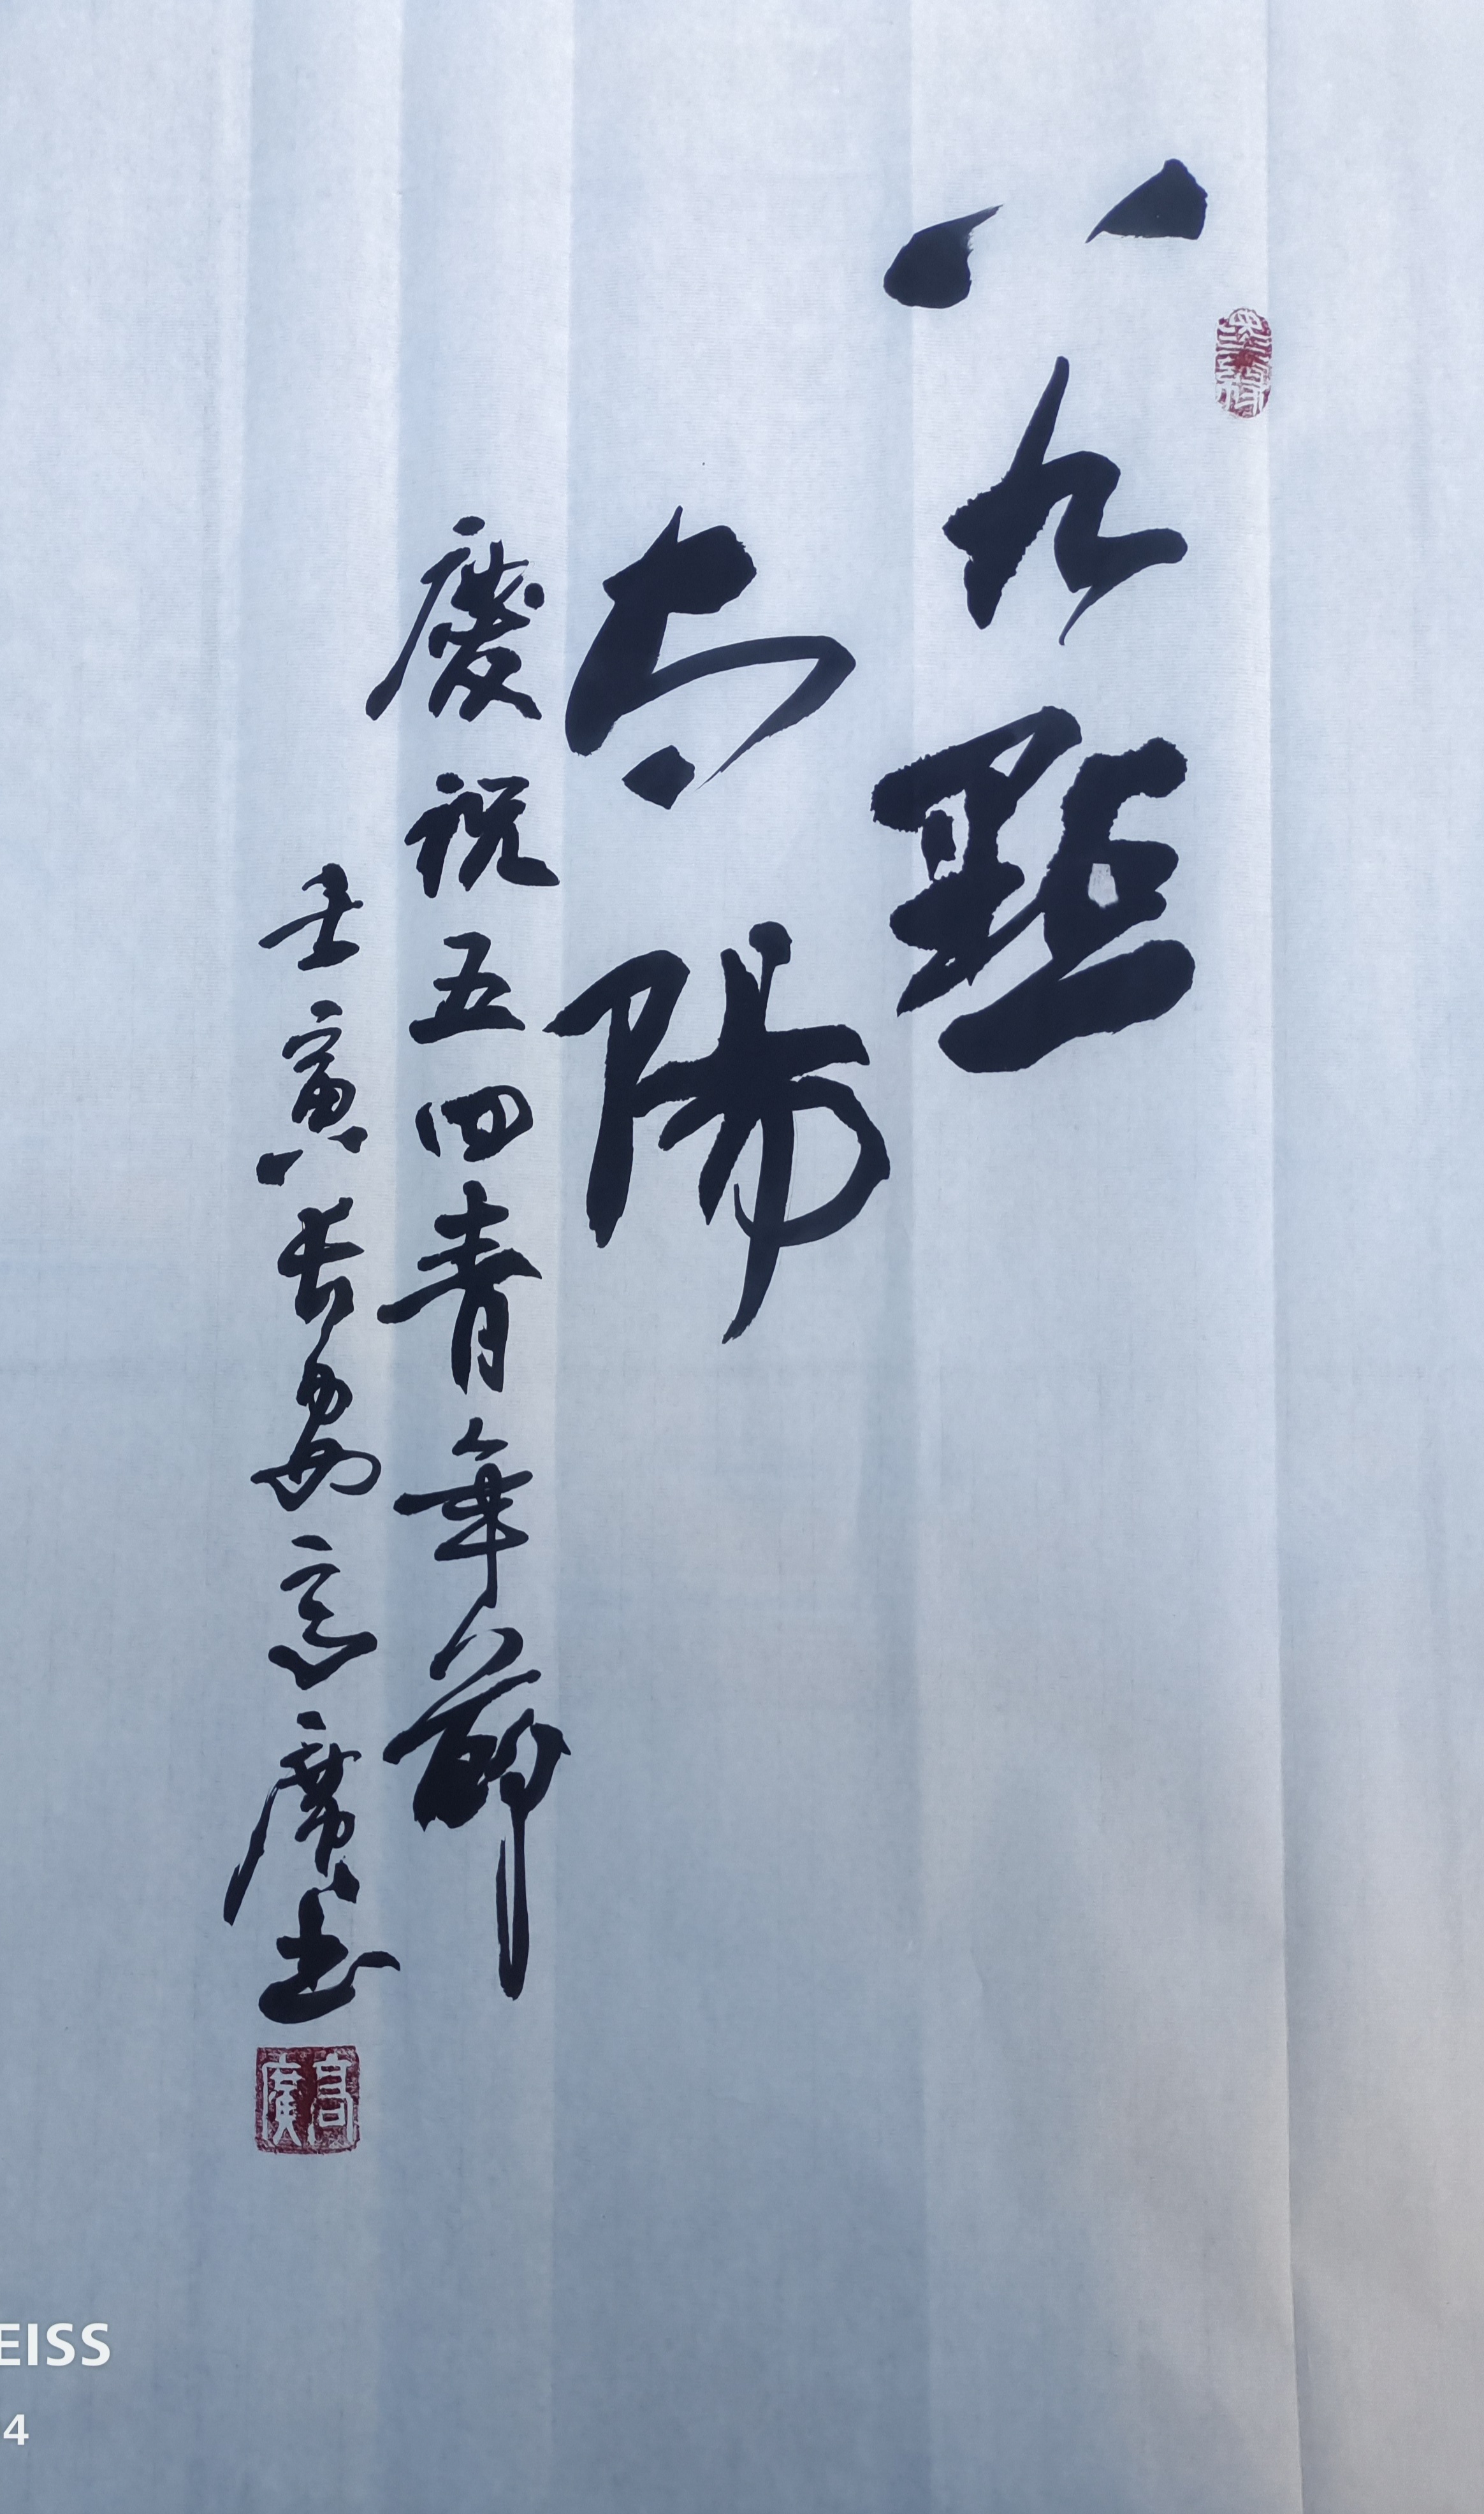 八九點
太陽
慶祝五四青年節
壬寅長安高廣書
高廣
EISS
4